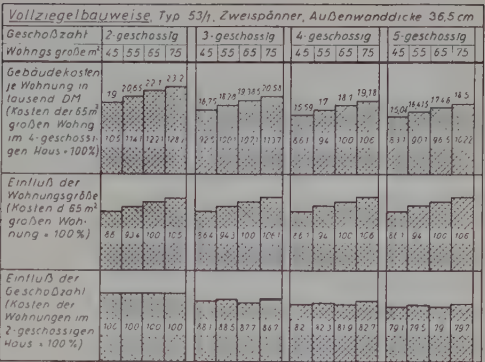 Vollziegelbauweise, Typ 53/1, Zweispänner, Außenwanddicke 36,5 cm
Geschoßzahl 2-geschossig 3-geschossig 4-geschossig 5-geschossig
Wohngs größe m² 45 55 65 75 45 55 65 75 45 55 65 75 45 55 65 75
Gebäudekosten
je Wohnung in
tausend DM
(Kosten der 65 m²
großen Wohng
im 4-geschossi-
gen Haus = 100%)
19 20,65 22,1 23,2
16,75 18,28 19,385 20,58
15,59 17 18,1 19,18
15,04 16,415 17,46 18,5
105 114,1 122,1 128,2
92,5 101 107,1 113,7
86,1 94 100 106
83,1 90,1 96,5 102,2
Einfluß der
Wohnungsgröße
(Kosten d 65 m²
großen Woh-
nung = 100%)
86 93,4 100 105
86,4 94,3 100 106,1
86,1 94 100 106
86,1 94 100 106
Einfluß der
Geschoßzahl
(Kosten der
Wohnungen im
2-geschossigen
Haus = 100%)
100 100 100 100
88,1 88,5 87,7 88,7
82 82,3 81,9 82,7
79,1 79,5 79 79,7